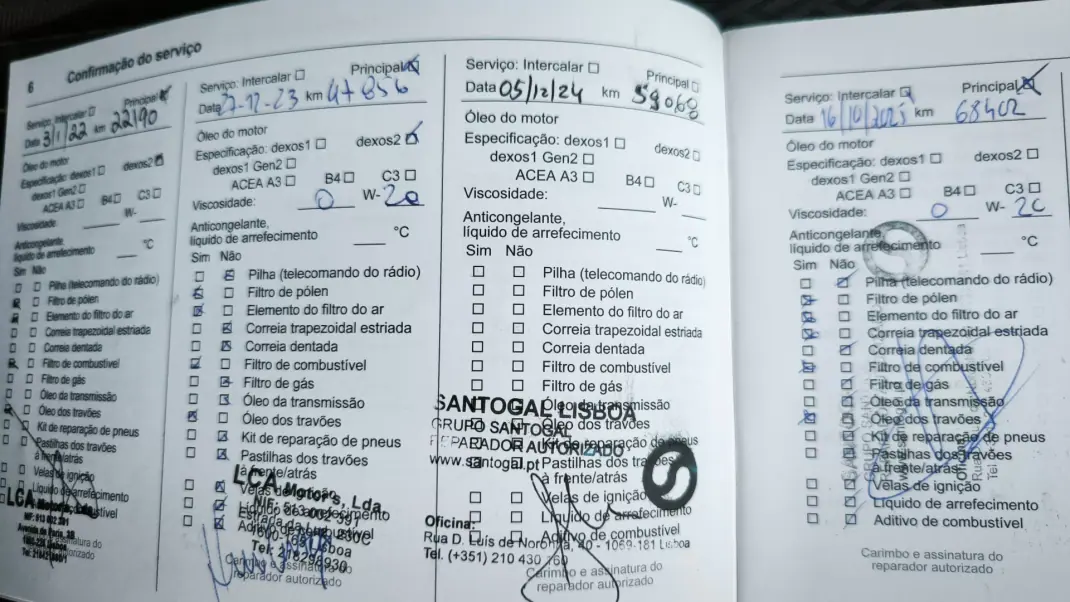 6 Confirmação do serviço
Serviço: Intercalar
Principal
Data 3/1/22 km 22190
Óleo do motor
Especificação: dexos1 dexos2
dexos1 Gen2
ACEA A3 B4 C3
Viscosidade: W-
Anticongelante,
líquido de arrefecimento °C
Sim Não
Pilha (telecomando do rádio)
Filtro de pólen
Elemento do filtro do ar
Correia trapezoidal estriada
Correia dentada
Filtro de combustível
Filtro de gás
Óleo da transmissão
Óleo dos travões
Kit de reparação de pneus
Pastilhas dos travões
à frente/atrás
Velas de ignição
Líquido de arrefecimento
LCA Motors, Lda
Serviço: Intercalar Principal
Data 27-12-23 km 47856
Óleo do motor
Especificação: dexos1 dexos2
dexos1 Gen2
ACEA A3 B4 C3
Viscosidade: 0 W-20
Anticongelante,
líquido de arrefecimento °C
Sim Não
Pilha (telecomando do rádio)
Filtro de pólen
Elemento do filtro do ar
Correia trapezoidal estriada
Correia dentada
Filtro de combustível
Filtro de gás
Óleo da transmissão
Óleo dos travões
Kit de reparação de pneus
Pastilhas dos travões
à frente/atrás
Velas de ignição
Líquido de arrefecimento
Aditivo de combustível
LCA Motors, Lda
Carimbo e assinatura do
reparador autorizado
Serviço: Intercalar Principal
Data 05/12/24 km 59068
Óleo do motor
Especificação: dexos1 dexos2
dexos1 Gen2
ACEA A3 B4 C3
Viscosidade: W-
Anticongelante,
líquido de arrefecimento °C
Sim Não
Pilha (telecomando do rádio)
Filtro de pólen
Elemento do filtro do ar
Correia trapezoidal estriada
Correia dentada
Filtro de combustível
Filtro de gás
Óleo da transmissão
Óleo dos travões
Kit de reparação de pneus
Pastilhas dos travões
à frente/atrás
Velas de ignição
Líquido de arrefecimento
Aditivo de combustível
SANTOGAL LISBOA
GRUPO SANTOGAL
REPARADOR AUTORIZADO
www.santogal.pt
Oficina:
Rua D. Luís de Noronha, 40 - 1069-181 Lisboa
Tel. (+351) 210 430 760
Carimbo e assinatura do
reparador autorizado
Serviço: Intercalar Principal
Data 16/10/2025 km 68402
Óleo do motor
Especificação: dexos1 dexos2
dexos1 Gen2
ACEA A3 B4 C3
Viscosidade: 0 W-20
Anticongelante,
líquido de arrefecimento °C
Sim Não
Pilha (telecomando do rádio)
Filtro de pólen
Elemento do filtro do ar
Correia trapezoidal estriada
Correia dentada
Filtro de combustível
Filtro de gás
Óleo da transmissão
Óleo dos travões
Kit de reparação de pneus
Pastilhas dos travões
à frente/atrás
Velas de ignição
Líquido de arrefecimento
Aditivo de combustível
Carimbo e assinatura do
reparador autorizado